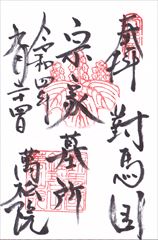 奉拝
對馬国
宗家墓所
令和四年
九月二十四日
萬松院